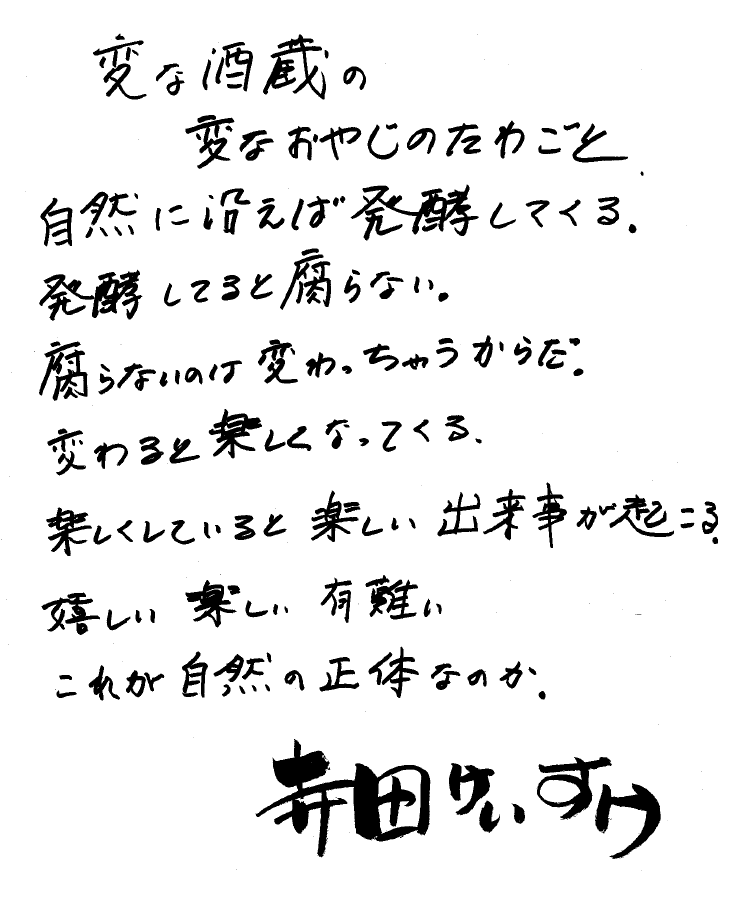 変な酒蔵の
変なおやじのたわごと
自然に沿えば発酵してくる.
発酵してると腐らない.
腐らないのは変わっちゃうからだ.
変わると楽しくなってくる.
楽しくしていると楽しい出来事が起こる.
嬉しい 楽しい 有難い
これが自然の正体なのか.
寺田けいすけ